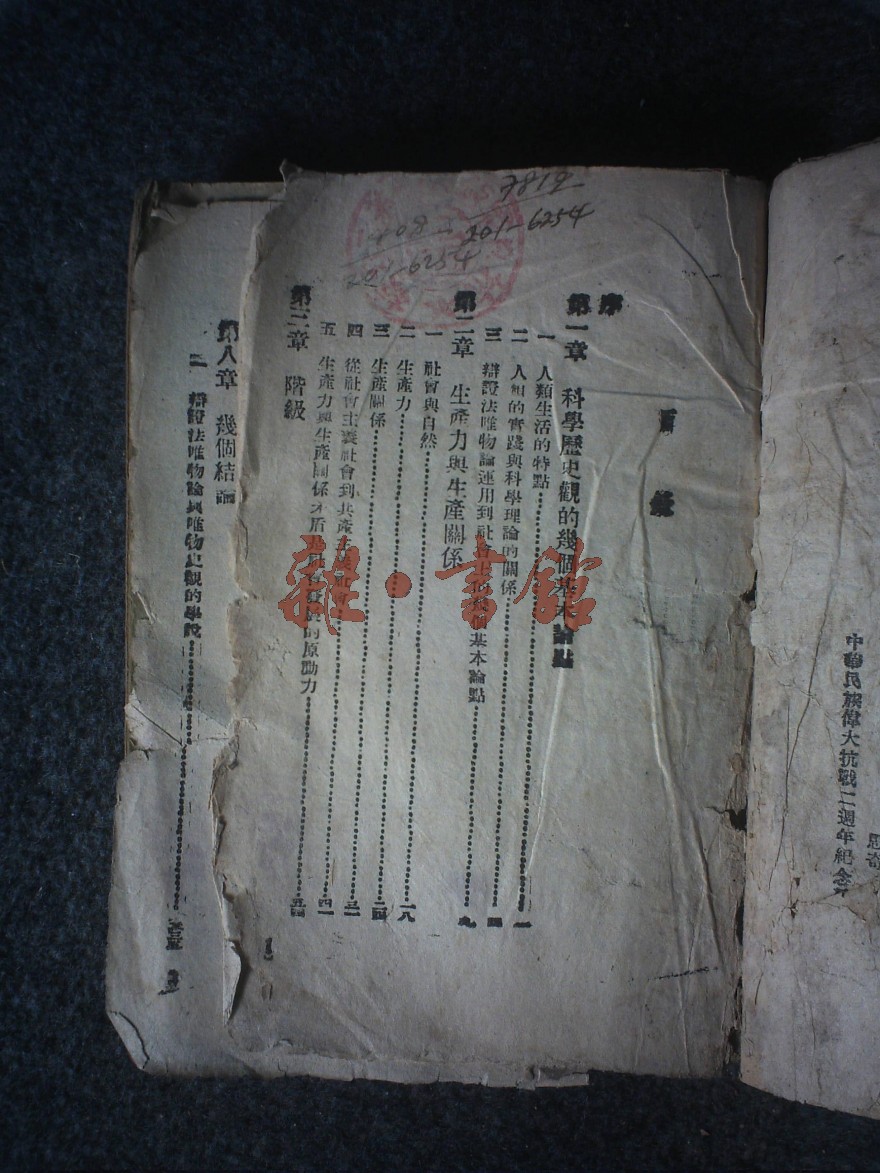 思奇
中華民族偉大抗戰二週年紀念
目錄
序
第一章 科學歷史觀的幾個基本論點
一 人類生活的特點 一
二 人類的實踐與科學理論的關係 四
三 辯證法唯物論運用到社會上的幾個基本論點 九
第二章 生產力與生產關係
一 社會與自然
二 生產力 一八
三 生產關係 二四
四 從社會主義社會到共產主義社會 三一
五 生產力與生產關係矛盾是社會發展的原動力 四一
第三章 階級 五四
第八章 幾個結論
三 辯證法唯物論與唯物史觀的學說
7819
201-6254
201-6254
雜·書館